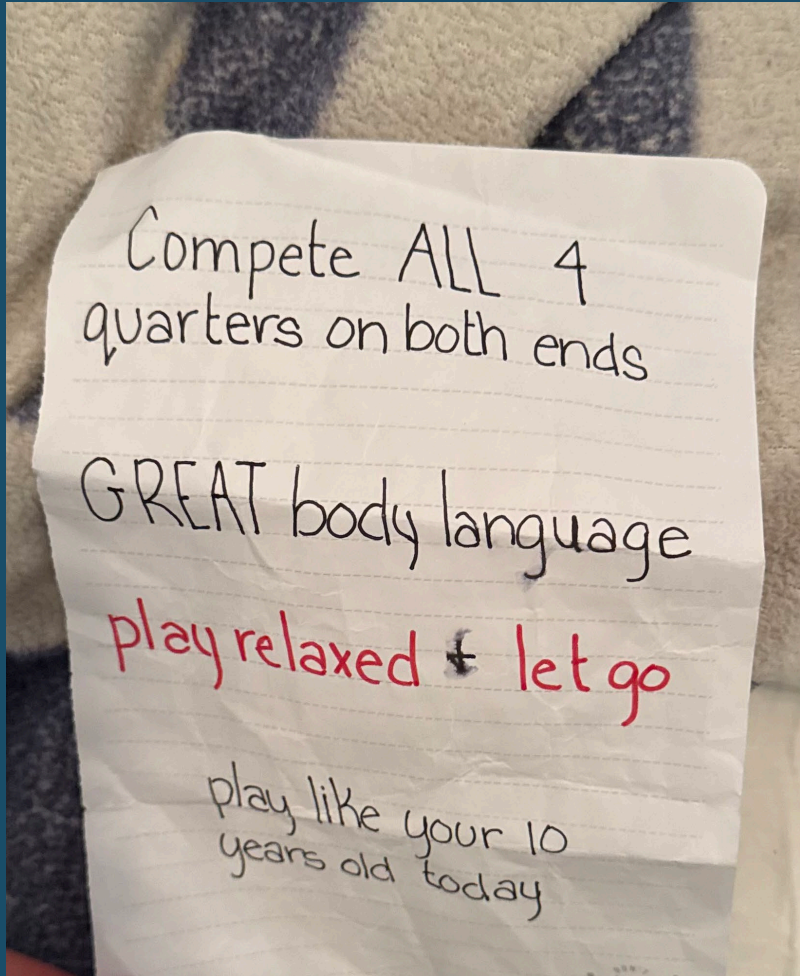 Compete ALL 4
quarters on both ends
GREAT body language
play relaxed + let go
play like your 10
years old today